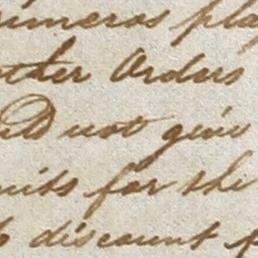 numeros pla
other Orders
and not give
mits for the
to discount f